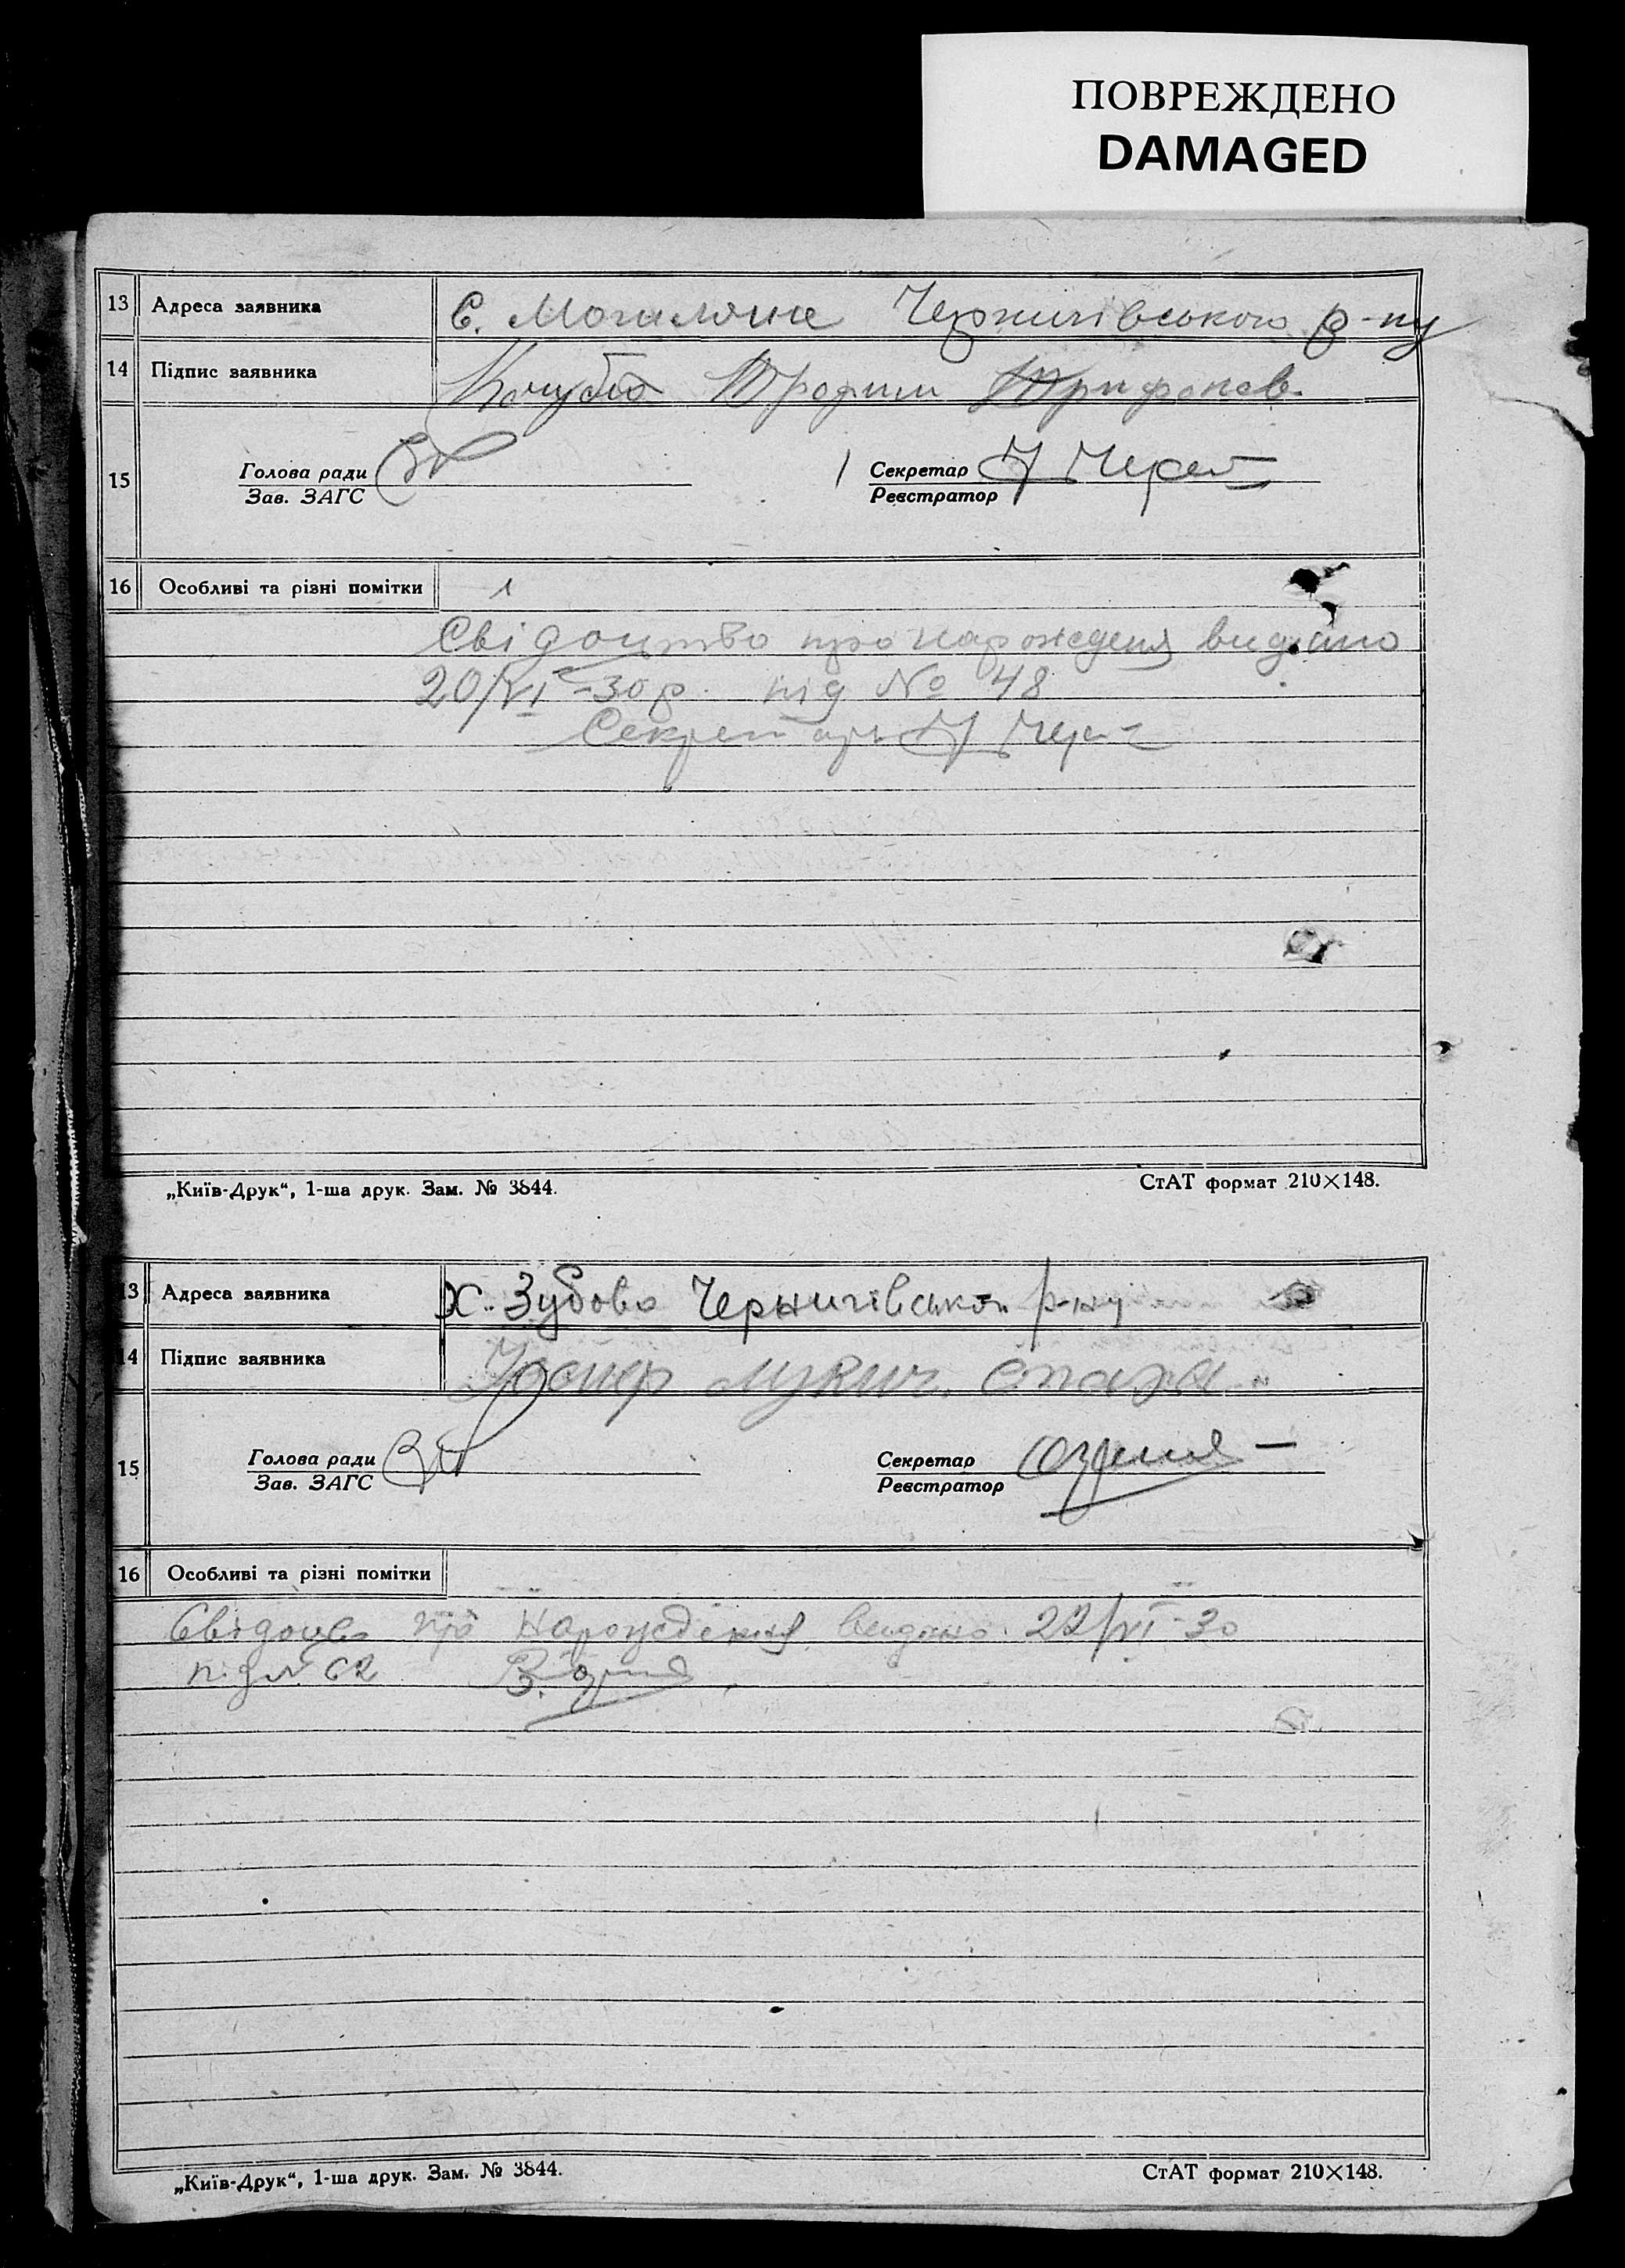 ПОВРЕЖДЕНО
DAMAGED
13 Адреса заявника С. Могиляне Чернигівського р-ну
14 Підпис заявника Кочубей Трофим Трифонов.
15 Голова ради Секретар
Зав. ЗАГС Реєстратор
16 Особливі та різні помітки 1
Свідоцтво про народженя видано
20/VI-30 р. під № 48
Секретарь
„Київ-Друк“, 1-ша друк. Зам. № 3844. СтАТ формат 210×148.
13 Адреса заявника х. Зубово Чернигівськ р-ну
14 Підпис заявника Йосиф Лукич
15 Голова ради Секретар
Зав. ЗАГС Реєстратор
16 Особливі та різні помітки
про видано 22/VI-30
під № 62
„Київ-Друк“, 1-ша друк. Зам. № 3844. СтАТ формат 210×148.